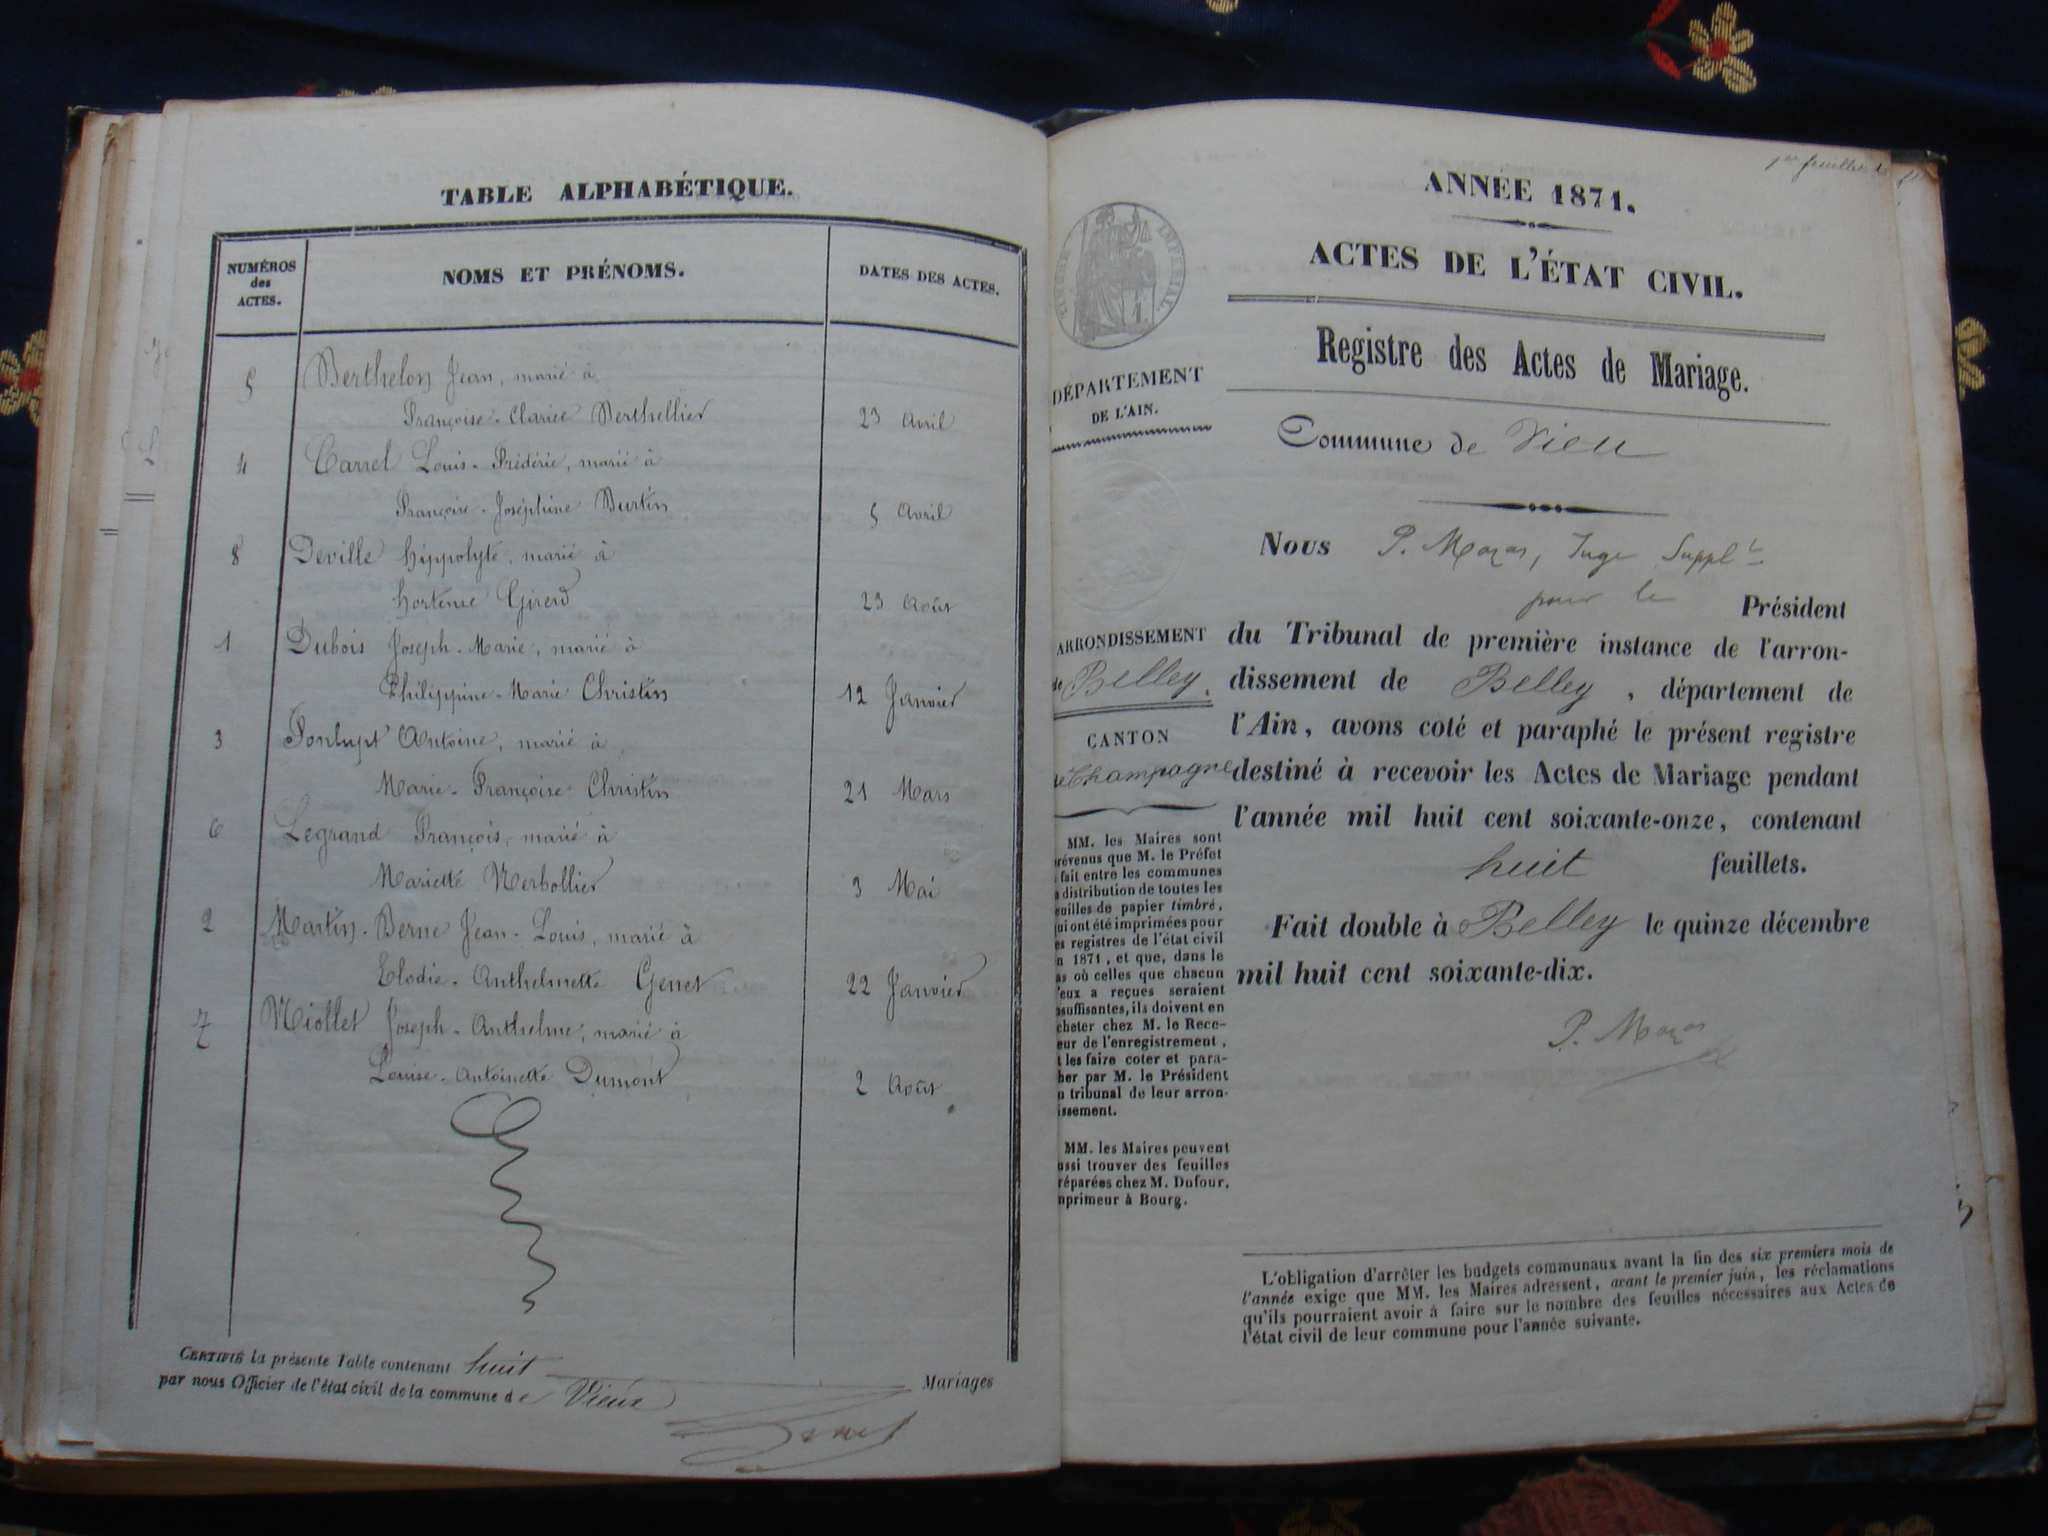 TABLE ALPHABÉTIQUE.
NUMÉROS
des
ACTES.
NOMS ET PRÉNOMS.
DATES DES ACTES.
5 Berthelon Jean, marié à
Françoise-Clarice Berthellier 23 Avril
4 Carrel Louis-Frédéric, marié à
Françoise-Joséphine Burtin 5 Avril
8 Deville hippolyte, marié à
hortense Girerd 23 Août
1 Dubois Joseph-Marie, marié à
Philippine-Marie Christin 12 Janvier
3 Antoine, marié à
Marie-Françoise Christin 21 Mars
6 Legrand François, marié à
Mariette 3 Mai
2 Martin-Berne Jean-Louis, marié à
Elodie-Anthelmette Genet 22 Janvier
7 Joseph-Anthelme, marié à
Louise-Antoinette Dumont 2 Août
CERTIFIÉ la présente Table contenant huit Mariages
par nous Officier de l'état civil de la commune de Vieux
1er feuillet
ANNÉE 1871.
ACTES DE L'ÉTAT CIVIL.
Registre des Actes de Mariage.
DÉPARTEMENT
DE L'AIN.
Commune de Vieu
Nous P. Mazas, Juge Suppl.t
pour le Président
du Tribunal de première instance de l'arron-
dissement de Belley, département de
l'Ain, avons coté et paraphé le présent registre
destiné à recevoir les Actes de Mariage pendant
l'année mil huit cent soixante-onze, contenant
huit feuillets.
Fait double à Belley le quinze décembre
mil huit cent soixante-dix.
P. Mazas
ARRONDISSEMENT
de Belley.
CANTON
de Champagne
MM. les Maires sont
révenus que M. le Préfet
fait entre les communes
distribution de toutes les
euilles de papier timbré,
ui ont été imprimées pour
es registres de l'état civil
n 1871, et que, dans le
as où celles que chacun
'eux a reçues seraient
nsuffisantes, ils doivent en
cheter chez M. le Rece-
eur de l'enregistrement,
t les faire coter et para-
her par M. le Président
u tribunal de leur arron-
issement.
MM. les Maires peuvent
ussi trouver des feuilles
réparées chez M. Dufour,
mprimeur à Bourg.
L'obligation d'arrêter les budgets communaux avant la fin des six premiers mois de
l'année exige que MM. les Maires adressent, avant le premier juin, les réclamations
qu'ils pourraient avoir à faire sur le nombre des feuilles nécessaires aux Actes de
l'état civil de leur commune pour l'année suivante.